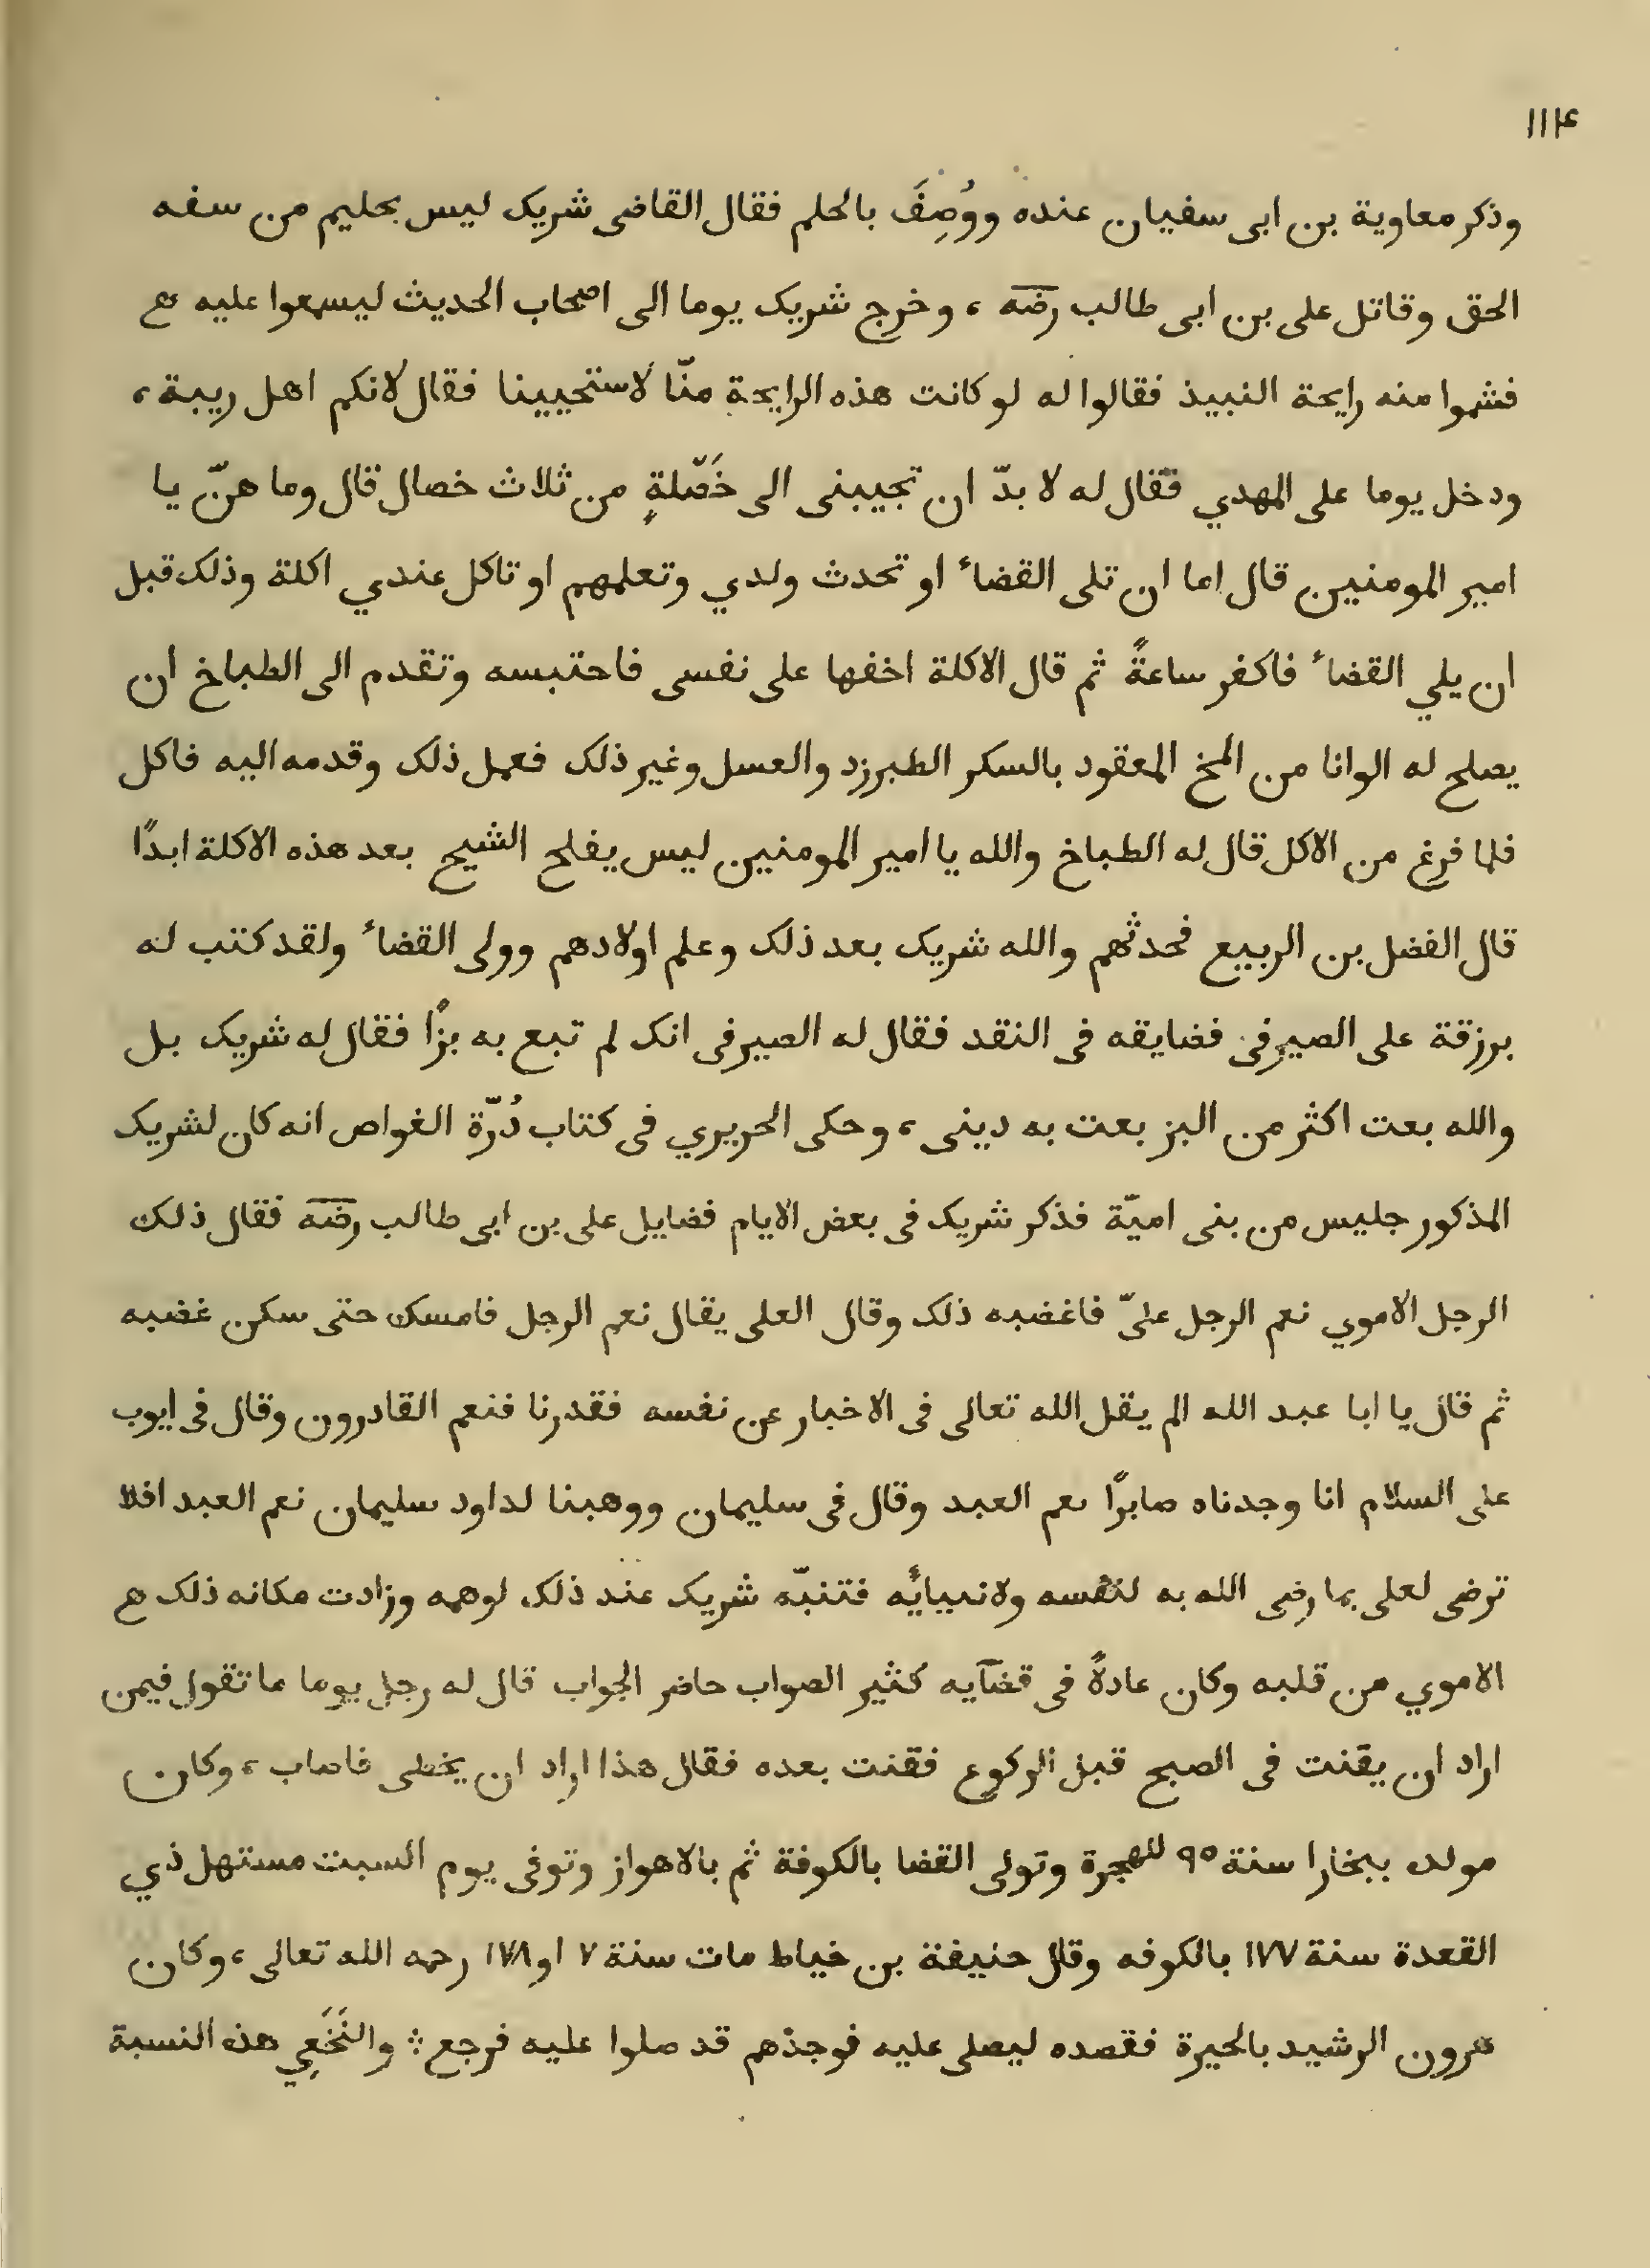 ١١۴
وذكر معاوية بن ابى سفيان عنده ووُصِفَ بالحلم فقال القاضى شريك ليس بحليم من سفه
الحق وقاتل على بن ابى طالب رضه ، وخرج شريك يوما الى اصحاب الحديث ليسمعوا عليه
فشموا منه رايحة النبيذ فقالوا له لو كانت هذه الرايحة منّا لاستحيينا فقال لانكم اهل ريبة ،
ودخل يوما على المهدي فقال له لا بدّ ان تجيبنى الى خَصْلةٍ من ثلاث خصال قال وما هنّ يا
امير المومنين قال اما ان تلى القضاء او تحدث ولدي وتعلمهم او تاكل عندي اكلة وذلك قبل
ان يلي القضاء فاكفر ساعةً ثم قال الاكلة اخفها على نفسى فاحتبسه وتقدم الى الطباخ ان
يصلح له الوانا من المخ المعقود بالسكر الطبرزد والعسل وغير ذلك فعمل ذلك وقدمه اليه فاكل
فلما فرغ من الاكل قال له الطباخ والله يا امير المومنين ليس يفلح الشيح بعد هذه الاكلة ابدًا
قال الفضل بن الربيع فحدثهم والله شريك بعد ذلك وعلم اولادهم وولى القضاء ولقد كتب له
برزقة على الصيرفى فضايقه فى النقد فقال له الصيرفى انك لم تبع به بزًا فقال له شريك بل
والله بعت اكثر من البز بعت به دينى ، وحكى الحريري فى كتاب دُرّة الغواص انه كان لشريك
المذكور جليس من بنى اميّة فذكر شريك فى بعض الايام فضايل على بن ابى طالب رضه فقال ذلك
الرجل الاموي نعم الرجل علىّ فاغضبه ذلك وقال العلى يقال نعم الرجل فامسك حتى سكن غضبه
ثم قال يا ابا عبد الله الم يقل الله تعالى فى الاخبار عن نفسه فقدرنا فنعم القادرون وقال فى ايوب
على السلام انا وجدناه صابرًا نعم العبد وقال فى سليمان ووهبنا لداود سليمان نعم العبد افلا
ترضى لعلى بما رضى الله به لنفسه ولانبيائه فتنبّه شريك عند ذلك لوهمه وزادت مكانه ذلك
الاموي من قلبه وكان عادةً فى قضآيه كثير الصواب حاضر الجواب قال له رجل يوما ما تقول فيمن
اراد ان يقنت فى الصبح قبل الركوع فقنت بعده فقال هذا اراد ان يخطى فاصاب ، وكان
مولده ببخارا سنة ٩٥ للهجرة وتولى القضا بالكوفة ثم بالاهواز وتوفى يوم السبت مستهل ذي
القعدة سنة ١٧٧ بالكوفه وقال حنيفة بن خياط مات سنة ٧ او ١٧٨ رحمه الله تعالى ، وكان
هرون الرشيد بالحيرة فقصده ليصلى عليه فوجدهم قد صلوا عليه فرجع ؛ والنَخَعِي هذه النسبة